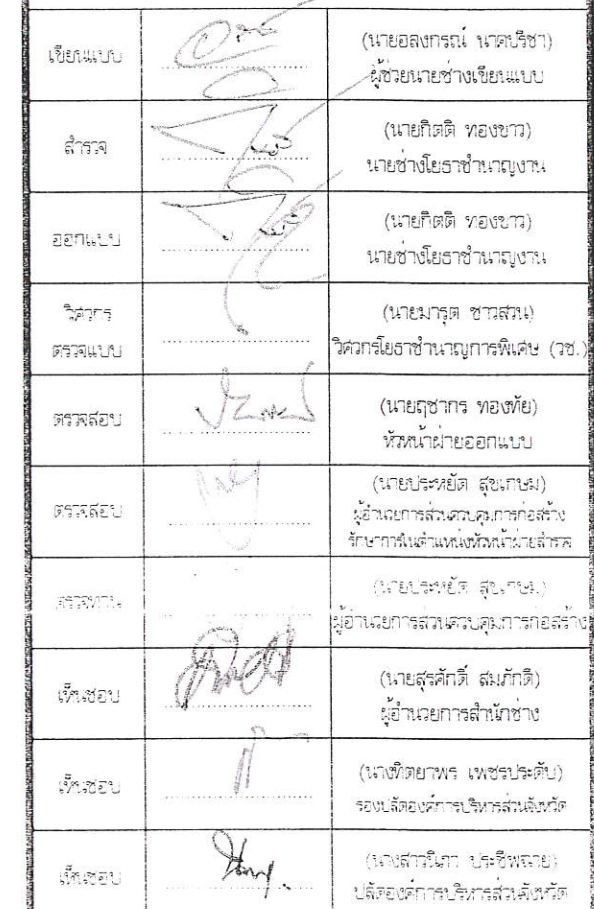 เขียนแบบ
(นายอลงกรณ์ นาคปรีชา)
ผู้ช่วยนายช่างเขียนแบบ
สำรวจ
(นายกิตติ ทองขาว)
นายช่างโยธาชำนาญงาน
ออกแบบ
(นายกิตติ ทองขาว)
นายช่างโยธาชำนาญงาน
วิศวกร
ตรวจแบบ
(นายมารุต ชาวสวน)
วิศวกรโยธาชำนาญการพิเศษ (วช.)
ตรวจสอบ
(นายฤชากร ทองทัย)
หัวหน้าฝ่ายออกแบบ
ตรวจสอบ
(นายประหยัด สุขเกษม)
ผู้อำนวยการส่วนควบคุมการก่อสร้าง
รักษาการในตำแหน่งหัวหน้าฝ่ายสำรวจ
ตรวจทาน
(นายประหยัด สุขเกษม)
ผู้อำนวยการส่วนควบคุมการก่อสร้าง
เห็นชอบ
(นายสุรศักดิ์ สมภักดิ์)
ผู้อำนวยการสำนักช่าง
เห็นชอบ
(นางทิตยาพร เพชรประดับ)
รองปลัดองค์การบริหารส่วนจังหวัด
เห็นชอบ
(นางสาวนิภา ประชีพฉาย)
ปลัดองค์การบริหารส่วนจังหวัด